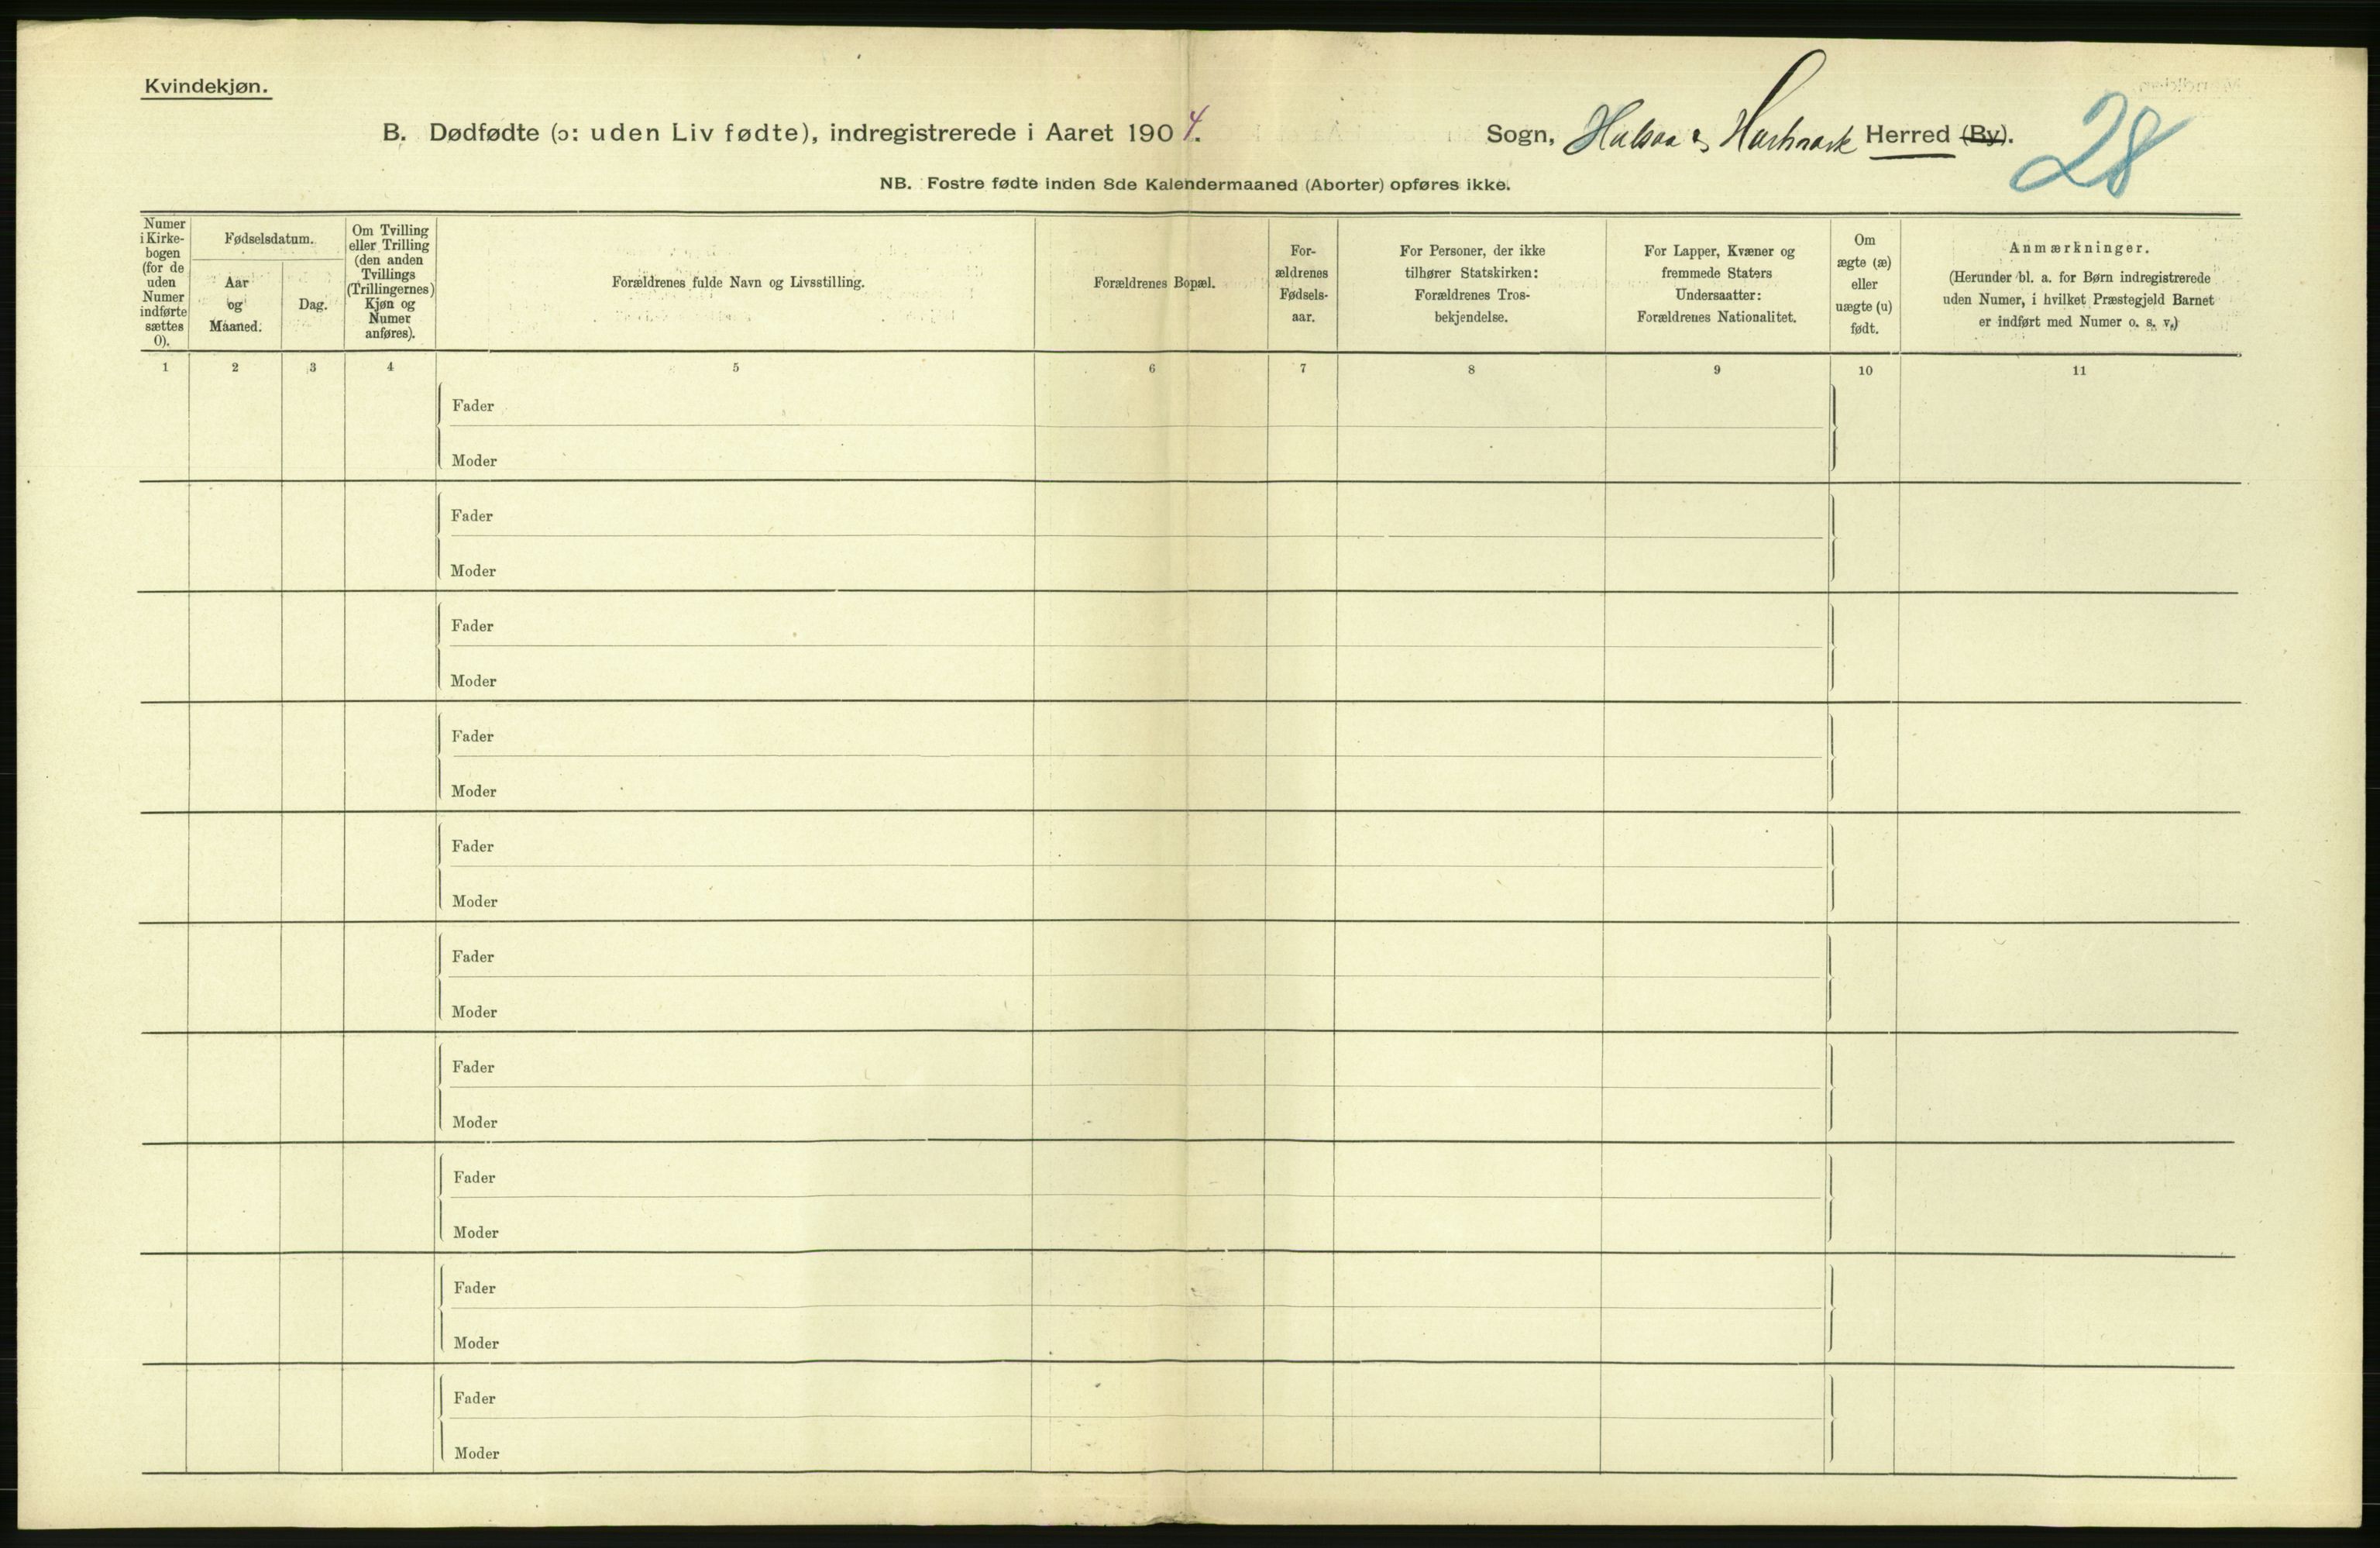 Kvindekjøn.
B. Dødfødte (ɔ: uden Liv fødte), indregistrerede i Aaret 1904. Sogn, Halsaa & Hartmark Herred (By).
28
NB. Fostre fødte inden 8de Kalendermaaned (Aborter) opføres ikke.
Numer
i Kirke-
bogen
(for de
uden
Numer
indførte
sættes
0).
Fødselsdatum.
Aar
og
Maaned.
Dag.
Om Tvilling
eller Trilling
(den anden
Tvillings
(Trillingernes)
Kjøn og
Numer
anføres).
Forældrenes fulde Navn og Livsstilling.
Forældrenes Bopæl.
For-
ældrenes
Fødsels-
aar.
For Personer, der ikke
tilhører Statskirken:
Forældrenes Tros-
bekjendelse.
For Lapper, Kvæner og
fremmede Staters
Undersaatter:
Forældrenes Nationalitet.
Om
ægte (æ)
eller
uægte (u)
født.
Anmærkninger.
(Herunder bl. a. for Børn indregistrerede
uden Numer, i hvilket Præstegjeld Barnet
er indført med Numer o. s. v.)
1 2 3 4 5 6 7 8 9 10 11
Fader
Moder
Fader
Moder
Fader
Moder
Fader
Moder
Fader
Moder
Fader
Moder
Fader
Moder
Fader
Moder
Fader
Moder
Fader
Moder